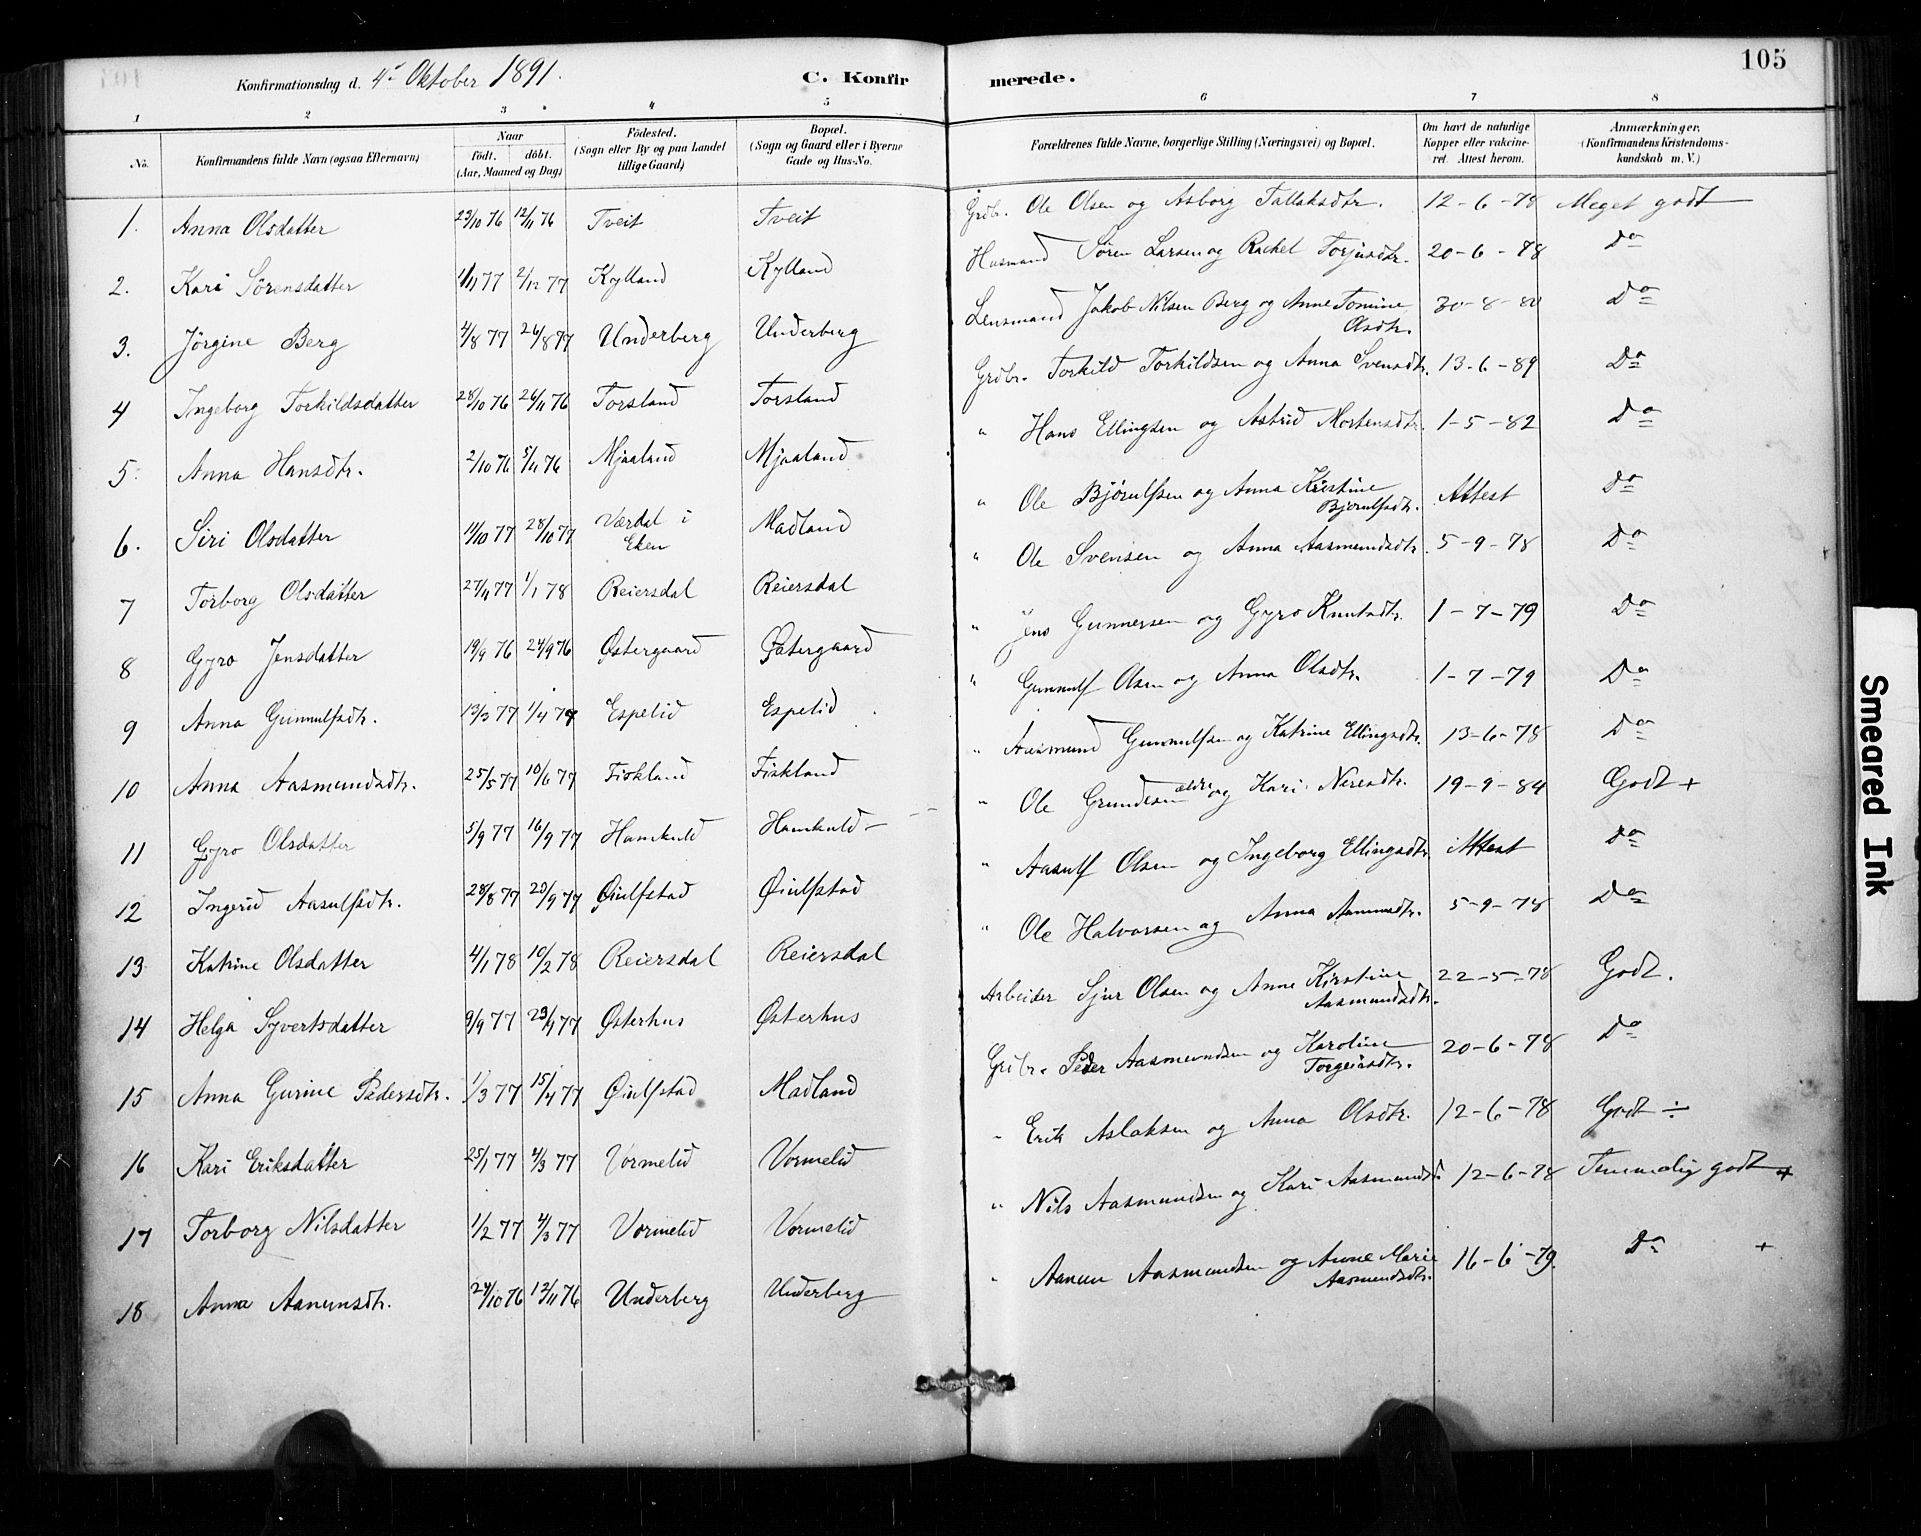 105
Konfirmationsdag d. 4de Oktober 1891. C. Konfirmerede.
1 2 3 4 5 6 7 8
No. Konfirmandens fulde Navn (ogsaa Efternavn) Naar födt. döbt. (Aar, Maaned og Dag) Födested. (Sogn eller By og paa Landet tillige Gaard) Bopæl. (Sogn og Gaard eller i Byerne Gade og Hus-No. Forældrenes fulde Navne, borgerlige Stilling (Næringsvei) og Bopæl. Om havt de naturlige Kopper eller vaccineret. Attest herom. Anmærkninger. (Konfirmandens Kristendomskundskab m. V.)
1. Anna Olsdatter 23/10 76 12/11 76 Tveit Tveit Grdbr. Ole Olsen og Asborg Tallaksdtr. 12-6-78 Meget godt
2. Kari Sörensdatter 1/11 77 2/12 77 Kylland Kylland Husmand Sören Larsen og Rachel Torjusdtr. 20-6-78 Do
3. Jörgine Berg 4/8 77 26/8 77 Underberg Underberg Lensmand Jakob Nilsen Berg og Anne Tomine Olsdtr. 30-8-80 Do
4 Ingeborg Torkildsdatter 28/10 76 26/11 76 Torsland Torsland Grdbr. Torkild Torkildsen og Anna Svensdtr. 13-6-89 Do
5. Anna Hansdtr. 2/10 76 5/11 76 Mjaaland Mjaaland " Hans Ellingsen og Astrid Mortensdtr. 1-5-82 Do
6. Siri Olsdatter 11/10 77 28/10 77 Værdal i Eken Madland " Ole Bjørulfsen og Anna Kristine Bjørulfsdtr. Attest Do
7 Torborg Olsdatter 27/11 77 1/1 78 Reiersdal Reiersdal " Ole Svensen og Anna Aasmundsdtr. 5-9-78 Do
8 Gyro Jensdatter 19/9 76 24/9 76 Østergaard Østergaard " Jens Gunnersen og Gyro Knutsdtr. 1-7-79 Do
9 Anna Gunnulfsdtr. 13/3 77 1/4 77 Espelid Espelid " Gunnulf Olsen og Anna Olsdtr. 1-7-79 Do
10 Anna Aasmundsdtr. 25/5 77 10/6 77 Fiskland Fiskland " Aasmund Gunnulfsen og Katrine Ellingsdtr. 13-6-78 Do
11 Gyro Olsdatter 5/9 77 16/9 77 Hamkuld Hamkuld " Ole Grundesen ældre og Kari Neresdtr. 19-9-84 Godt +
12 Ingerid Aasulfsdtr. 28/8 77 23/9 77 Øiulfstad Øiulfstad " Aasulf Olsen og Ingeborg Ellingsdtr. Attest Do
13 Katrine Olsdatter 4/1 78 10/2 78 Reiersdal Reiersdal " Ole Halvorsen og Anna Aanundtr. 5-9-78 Do
14 Helga Syvertsdatter 9/9 77 23/9 77 Østerhus Østerhus Arbeider Sjur Olsen og Anne Kirstine Aasmundsdtr. 22-5-78 Godt.
15 Anna Gurine Pedersdtr. 1/3 77 15/4 77 Øiulfstad Madland Grdbr. Peder Aasmundsen og Karoline Torgeirsdtr. 20-6-78 Do
16 Kari Eriksdatter 25/1 77 4/3 77 Vormelid Vormelid " Erik Aslaksen og Anna Olsdtr. 12-6-78 Godt ÷
17 Torborg Nilsdatter 1/2 77 4/3 77 Vormelid Vormelid " Nils Aasmundsen og Kari Aasmundsd 12-6-78 Temmelig godt +
18 Anna Aanunsdtr. 24/10 76 13/11 76 Underberg Underberg " Aanun Aasmundsen og Anne Marie Aasmundsdtr. 16-6-79. Do +
Smeared Ink